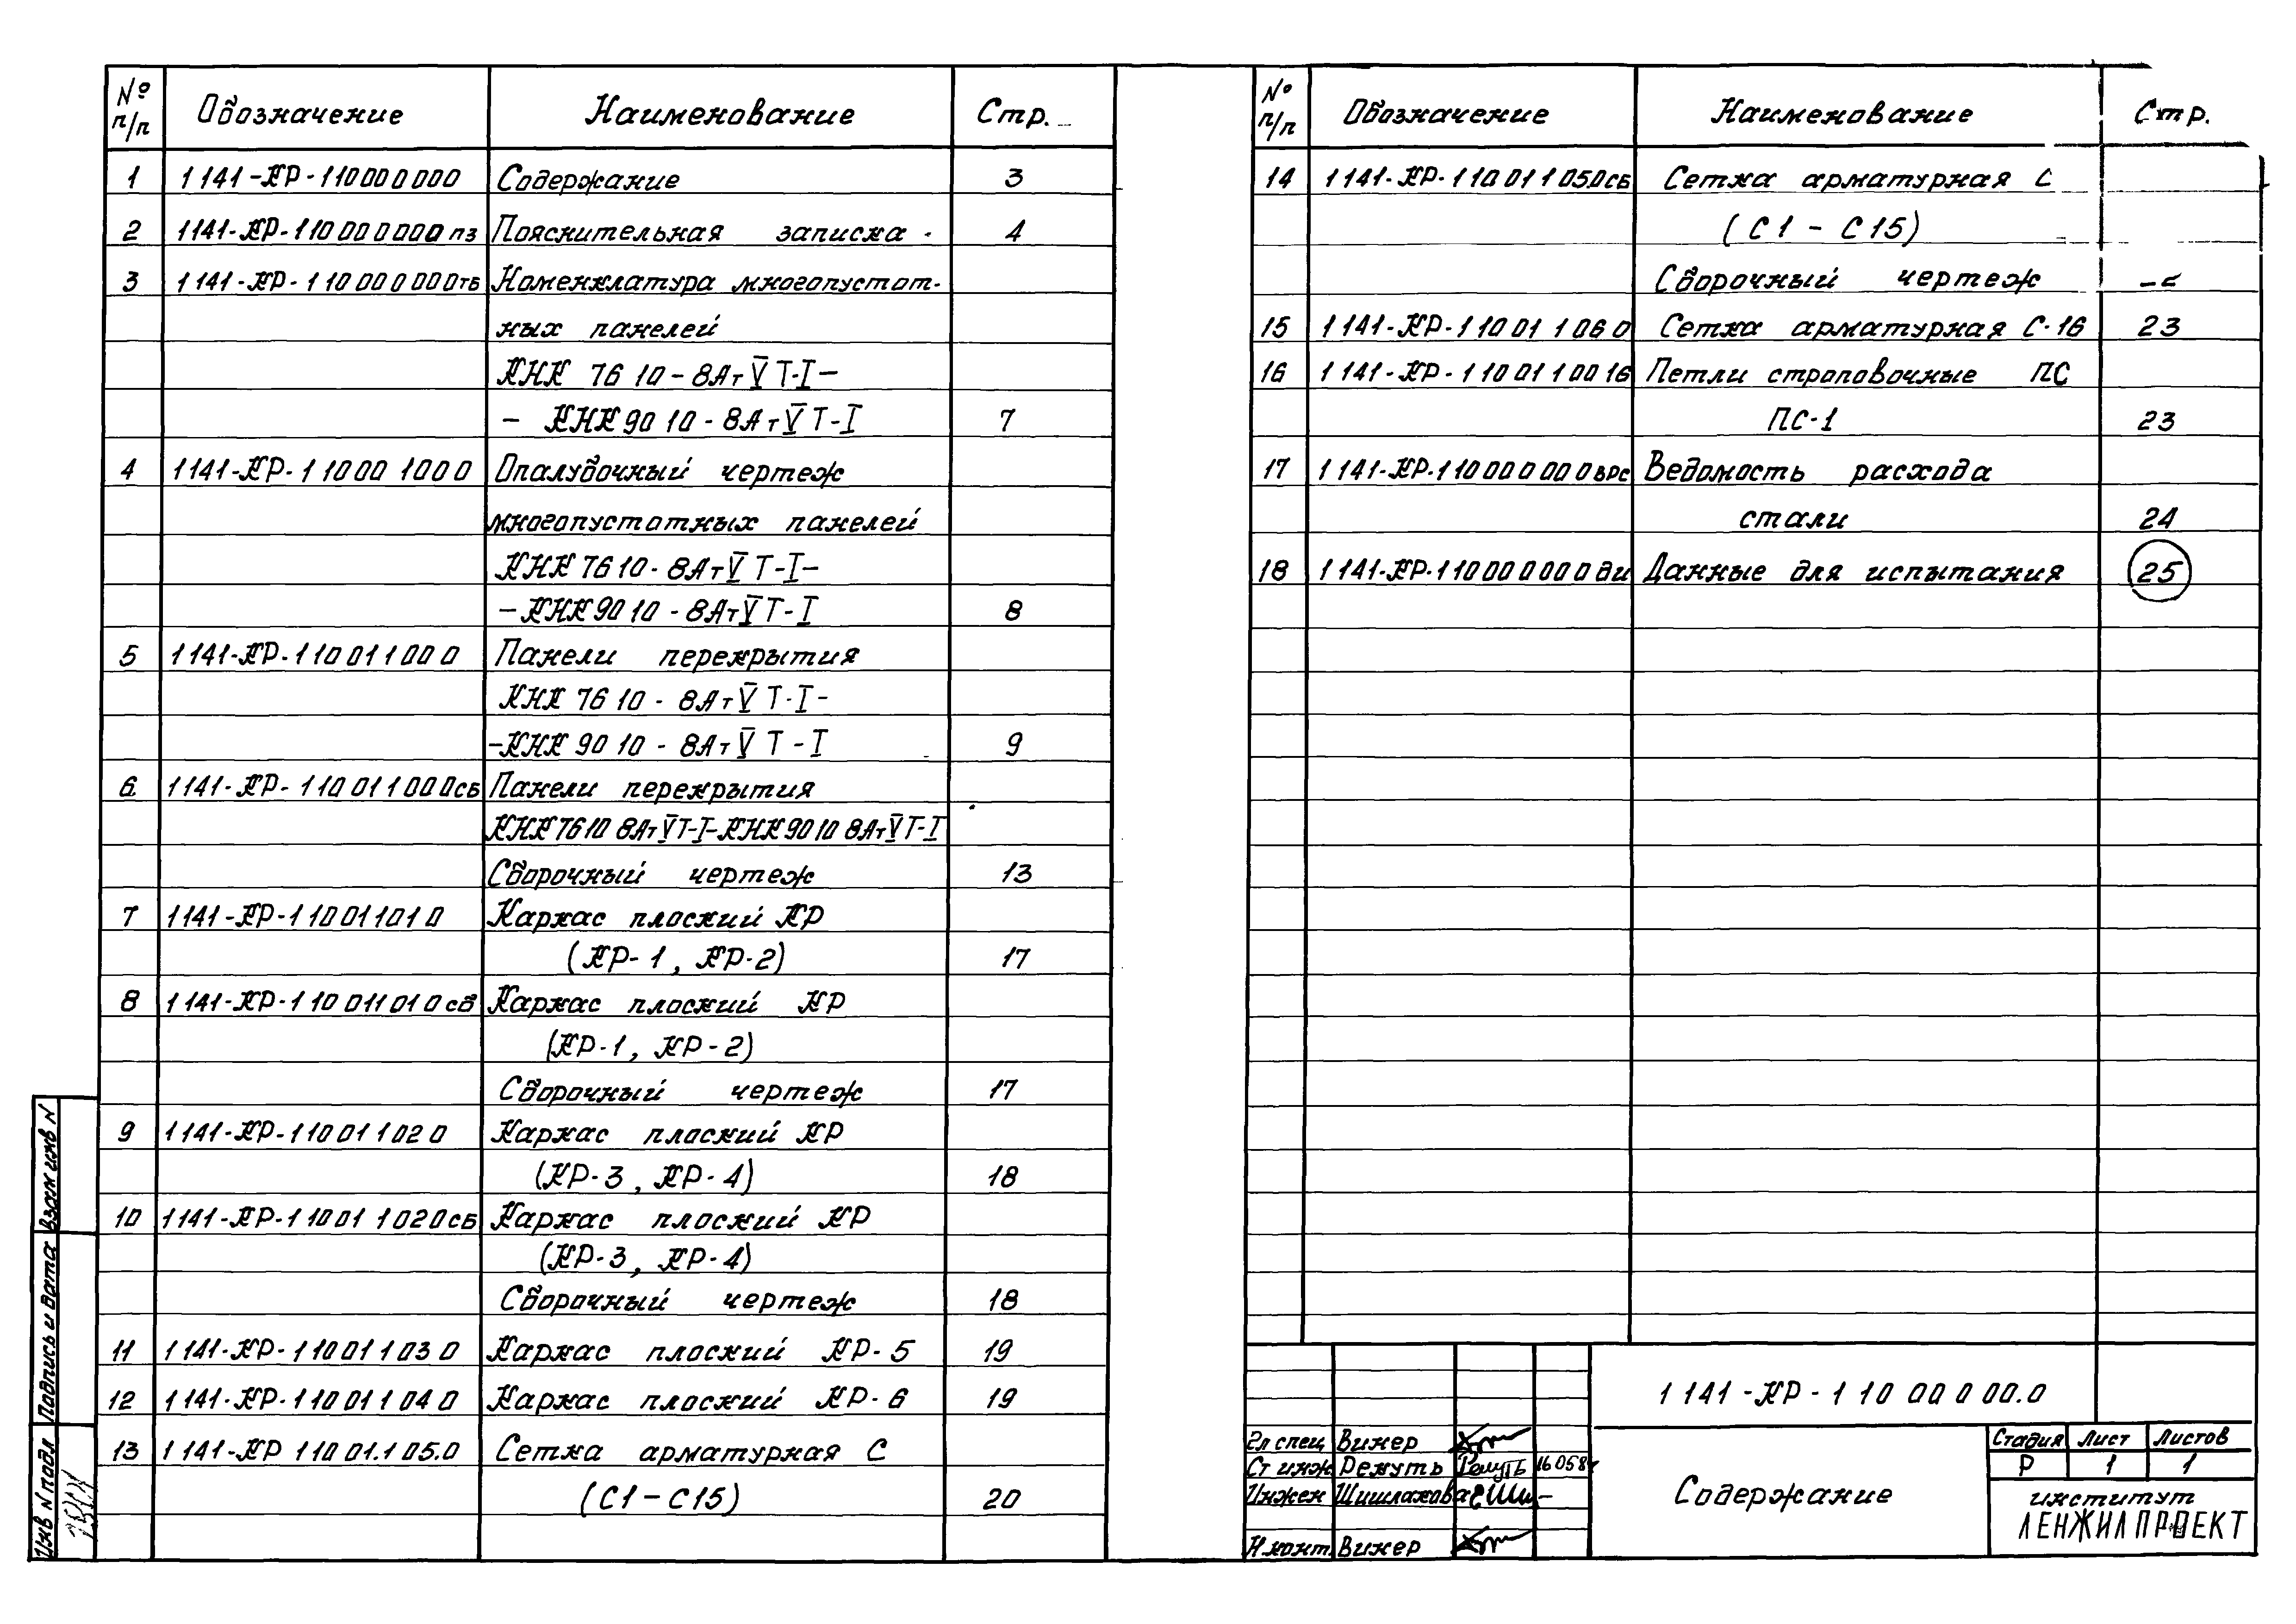 № п/п Обозначение Наименование Стр.
1 1141-КР-110000000 Содержание 3
2 1141-КР-110000000пз Пояснительная записка 4
3 1141-КР-110000000тб Номенклатура многопустот-
ных панелей
КНК 76 10-8Ат V Т-I-
- КНК 90 10-8Ат V Т-I 7
4 1141-КР-110001000 Опалубочный чертеж
многопустотных панелей
КНК 76 10-8Ат V Т-I-
-КНК 90 10-8Ат V Т-I 8
5 1141-КР-110011000 Панели перекрытия
КНК 76 10-8Ат V Т-I-
-КНК 90 10-8Ат V Т-I 9
6 1141-КР-110011000сб Панели перекрытия
КНК 76 10 8Ат V Т-I-КНК 90 10 8Ат V Т-I
Сборочный чертеж 13
7 1141-КР-110011010 Каркас плоский КР
(КР-1, КР-2) 17
8 1141-КР-110011010сб Каркас плоский КР
(КР-1, КР-2)
Сборочный чертеж 17
9 1141-КР-110011020 Каркас плоский КР
(КР-3, КР-4) 18
10 1141-КР-110011020сб Каркас плоский КР
(КР-3, КР-4)
Сборочный чертеж 18
11 1141-КР-110011030 Каркас плоский КР-5 19
12 1141-КР-110011040 Каркас плоский КР-6 19
13 1141-КР 11001.105.0 Сетка арматурная С
(С1-С15) 20
№ п/п Обозначение Наименование Стр.
14 1141-КР-110011050сб Сетка арматурная С
(С1-С15)
Сборочный чертеж
15 1141-КР-110011060 Сетка арматурная С-16 23
16 1141-КР-1100110016 Петли строповочные ПС
ПС-1 23
17 1141-КР-110000000врс Ведомость расхода
стали 24
18 1141-КР-110000000ди Данные для испытания 25
1141-КР-1100000.0
Гл спец Викер
Ст инж Рекуть 16 058
Инжен Шишлакова
Н.конт. Викер
Содержание
Стадия Лист Листов
Р 1 1
институт
ЛЕНЖИЛПРОЕКТ
Взам инв N
Подпись и дата
Инв N подл